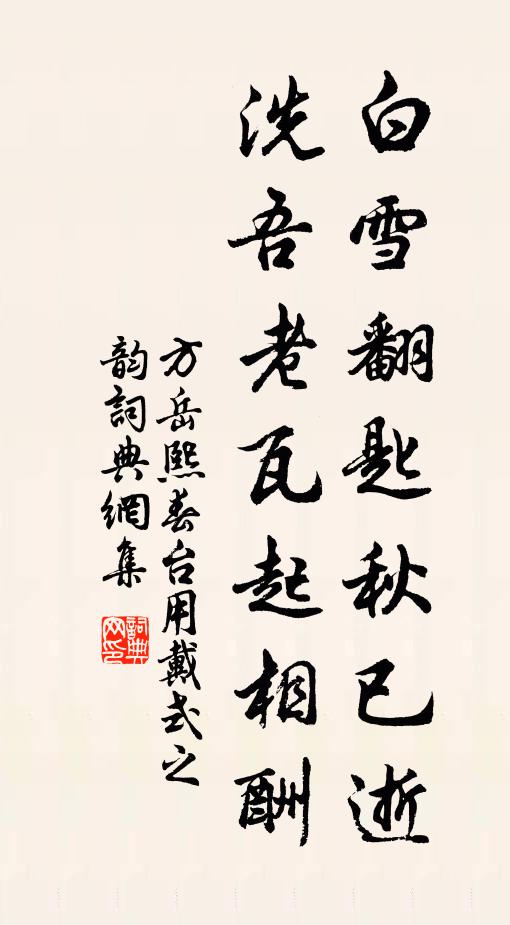 白雪翻匙秋已逝
洗吾老瓦起相酬
方岳熙春台用戴式之
韵詞典網集
詞典网印